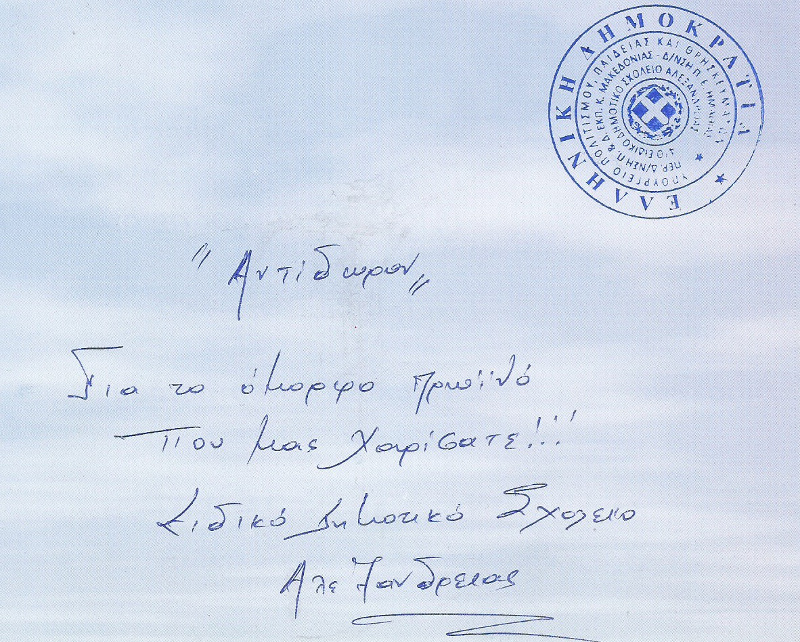 ΕΛΛΗΝΙΚΗ ΔΗΜΟΚΡΑΤΙΑ
ΥΠΟΥΡΓΕΙΟ ΠΟΛΙΤΙΣΜΟΥ, ΠΑΙΔΕΙΑΣ ΚΑΙ ΘΡΗΣΚΕΥΜΑΤΩΝ
ΠΕΡ. Δ/ΝΣΗ Π. & Δ. ΕΚΠ. Κ. ΜΑΚΕΔΟΝΙΑΣ - Δ/ΝΣΗ Π.Ε. ΗΜΑΘΙΑΣ
ΕΙΔΙΚΟ ΔΗΜΟΤΙΚΟ ΣΧΟΛΕΙΟ ΑΛΕΞΑΝΔΡΕΙΑΣ
"Αντίδωρον"
Για το όμορφο πρωϊνό
που μας χαρίσατε!!!
Ειδικό Δημοτικό Σχολείο
Αλεξανδρειας